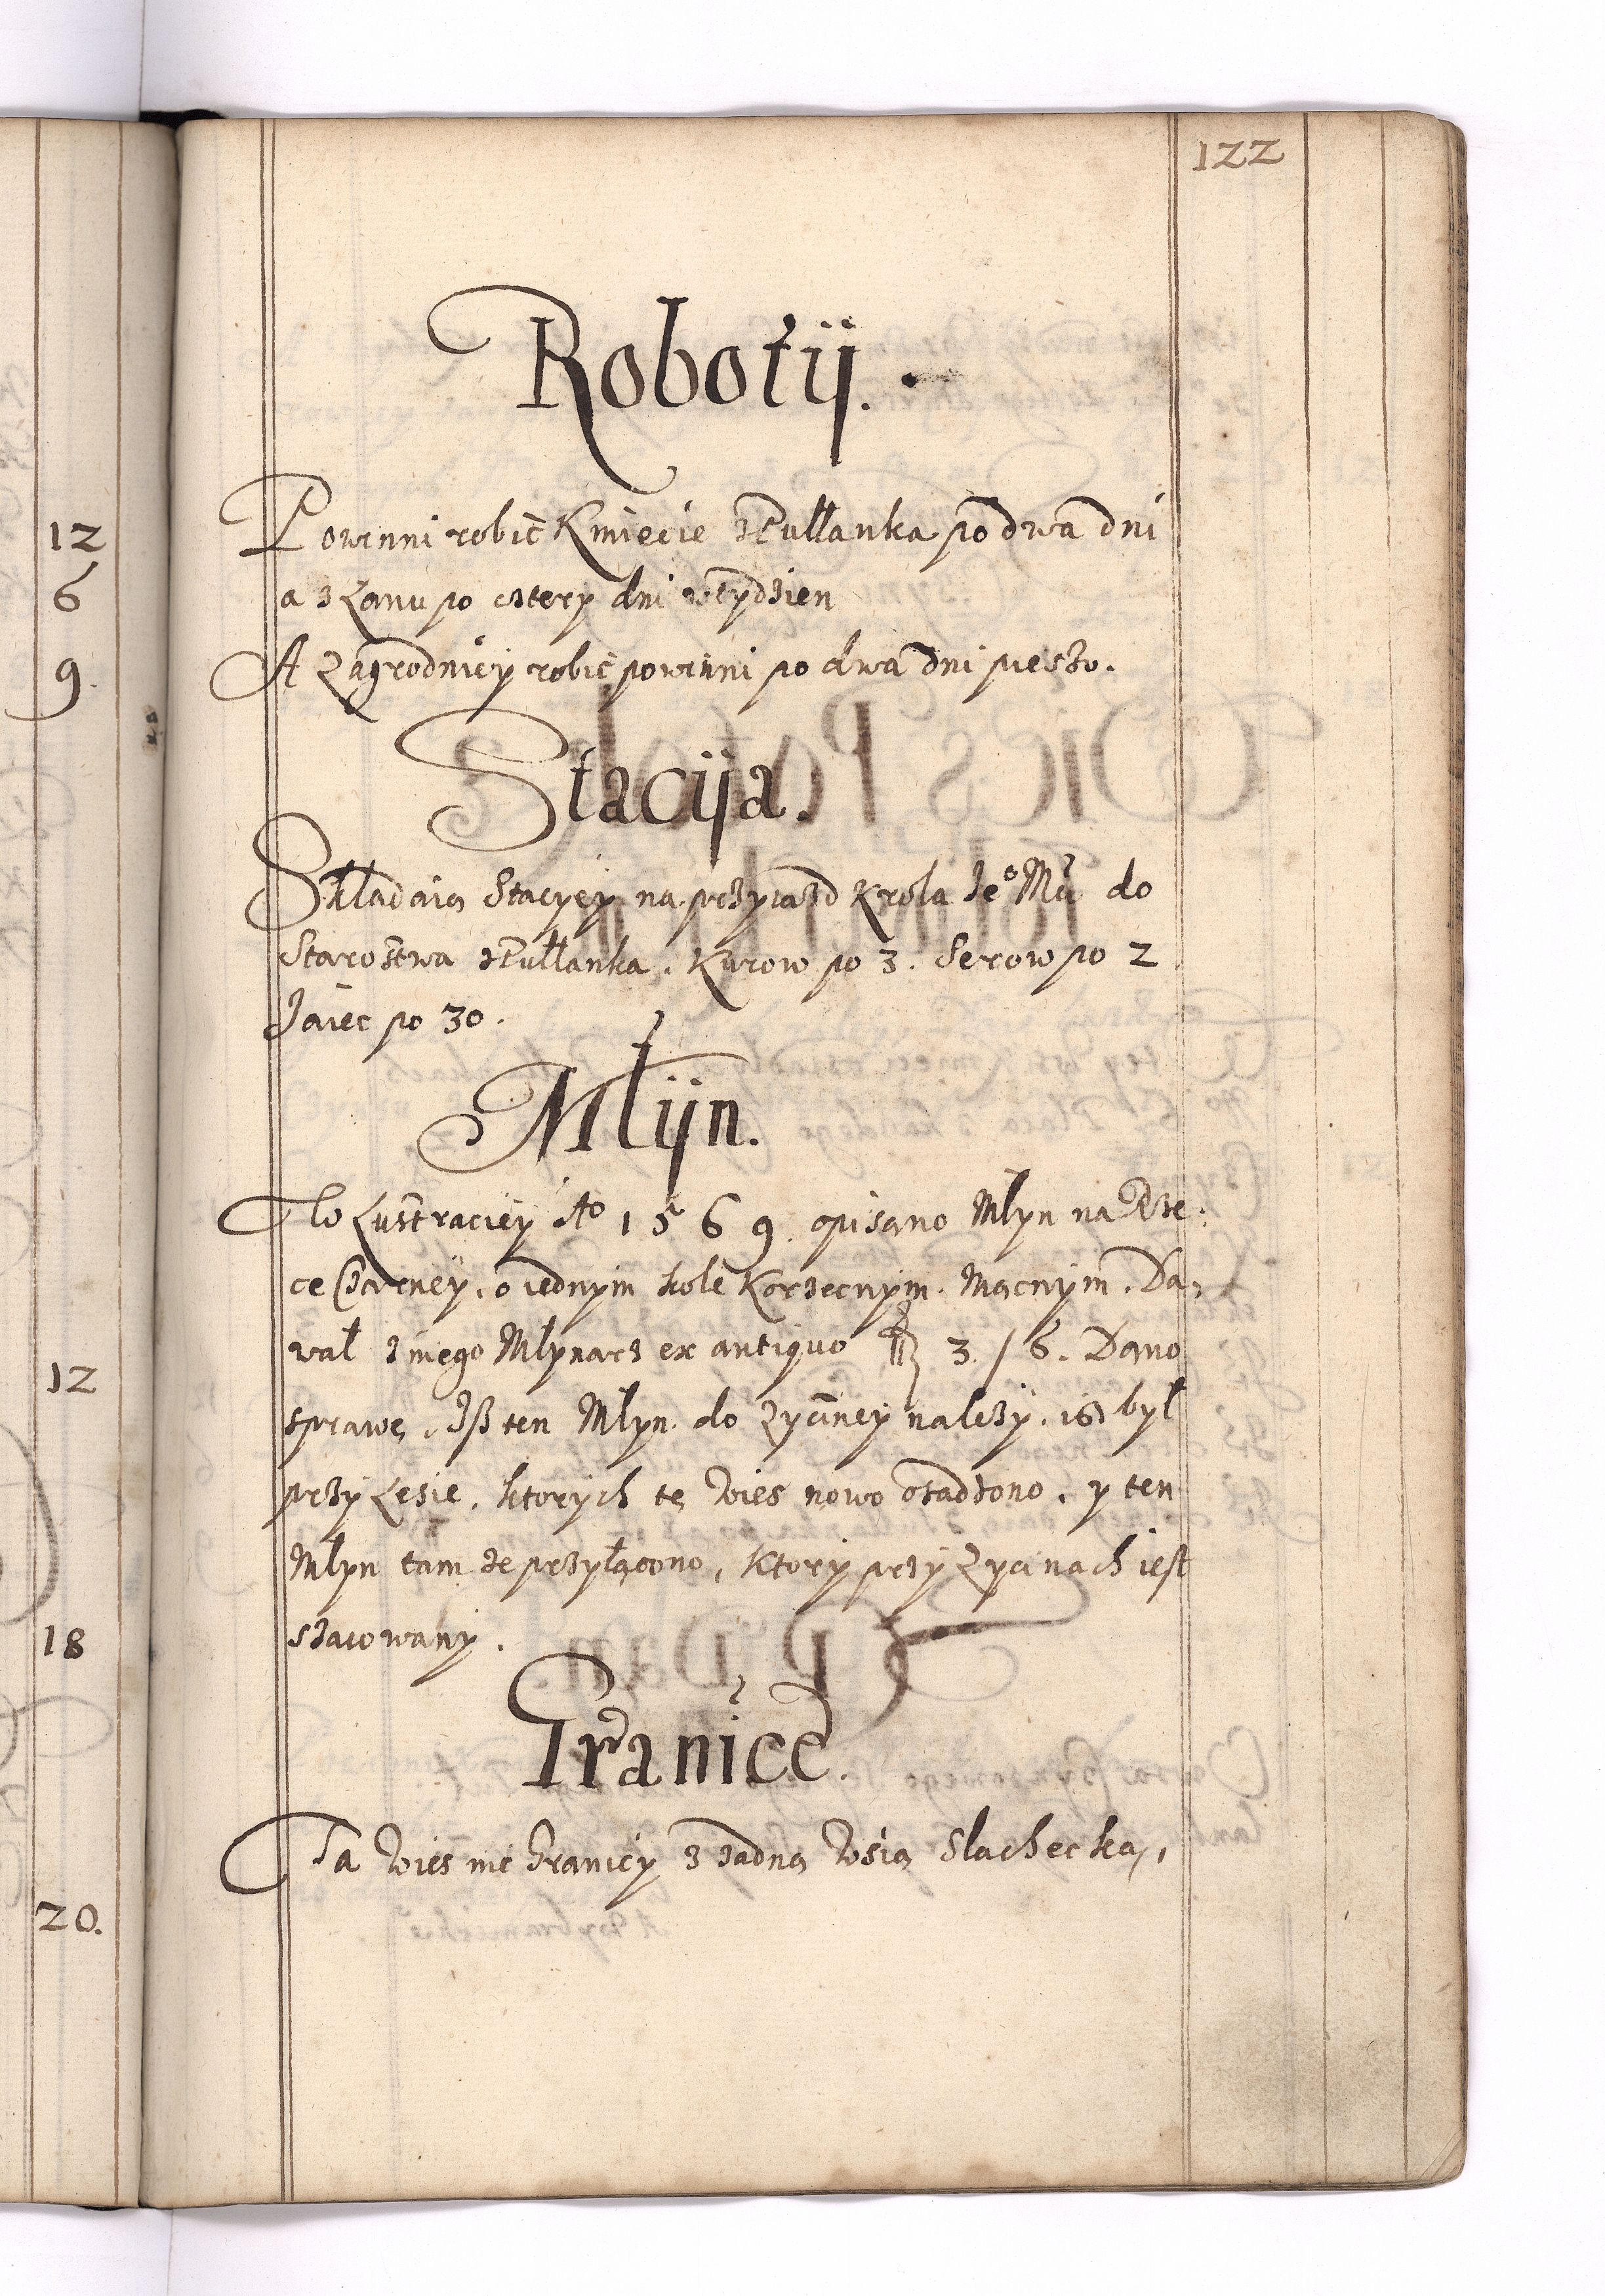 122
Robotÿ.
Powinni robić Kmiecie zPułłanka po dwa dni
a z Łanu po cztery dni wtydzien
A Zagrodnicy robić powinni po dwa dni pieszo.
Stacÿa.
Składaią Stacyey na przyiazd Krola Jeº Mći do
Starostwa zPułłanka. Kurow po 3. Serow po 2
Jaiec po 30.
Młÿn.
Lustraciey Aº 1569. opisano Młyn na Rze-
ce Czarney. o iednym kole Korzecznym. Mącnym. Da-
wał zniego Młynarz ex antiquo 3/6. Dano
sprawę, Iß ten Młyn do Zyciney należy. iß był
przy Lesie, ktorych tę Wies nowo osadzono. y ten
Młyn tam ze przyłącono, Ktory przy Zycinach iest
szacowany.
Granice.
Ta Wies nie Graniczy z zadną Wsią Slachecką,
12
6
9.
12
18
20.